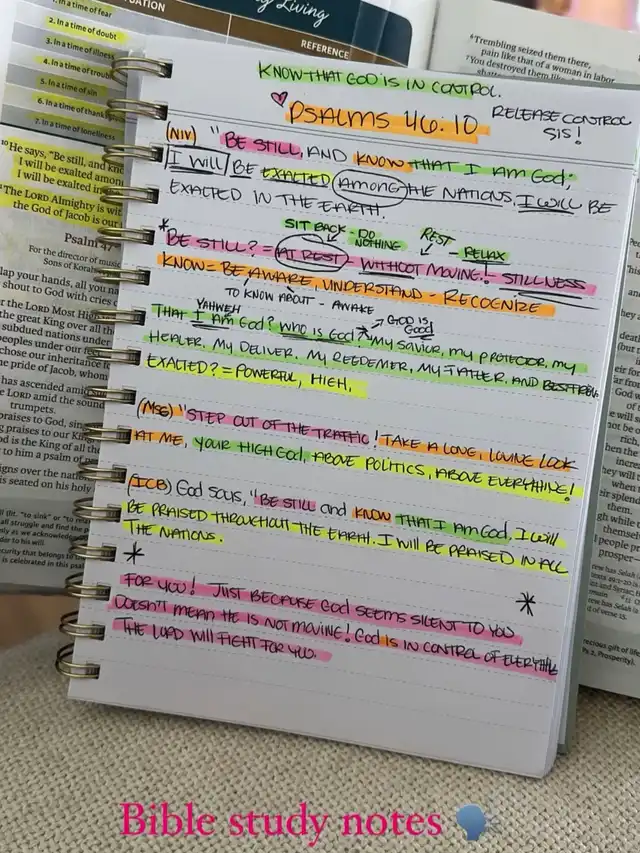 SITUATION
y Living
REFERENCE
1. In a time of fear
2. In a time of doubt
3. In a time of illness
4. In a time of troub
5. In a time of sin
6. In a time of thank
7. In a time of loneliness
10 He says, "Be still, and kno
I will be exalted among
I will be exalted in
The LORD Almighty is wit
the God of Jacob is our
Psalm 47
For the director of music
Sons of Korah
lap your hands, all you na
shout to God with cries
r the LORD Most High
the great King over all th
subdued nations under
peoples under our fe
chose our inheritance
e pride of Jacob, whom
has ascended amid
e LORD amid the sound
trumpets.
praises to God, sing
g praises to our Ki
d is the King of all th
to him a psalm of p
igns over the nation
is seated on his holy
KNOW THAT GOD IS IN CONTROL.
PSALMS 46:10
RELEASE CONTROL
SIS!
(NIV) "BE STILL, AND KNOW THAT I AM GOD;
I WILL BE EXALTED AMONG THE NATIONS, I WILL BE
EXALTED IN THE EARTH.
SIT BACK - DO NOTHING REST - RELAX
*BE STILL? = AT REST - WITHOUT MOVING! - STILLNESS
KNOW = BE AWARE, UNDERSTAND - RECOGNIZE
TO KNOW ABOUT - AWAKE
YAHWEH
GOD IS Good
THAT I AM GOD? WHO IS GOD * MY SAVIOR, MY PROTECTOR, MY
HEALER, MY DELIVER, MY REEDEMER, MY FATHER, AND BESTFRIEN
EXALTED? = POWERFUL, HIGH,
(MSG) "STEP OUT OF THE TRAFFIC! TAKE A LONG, LOVING LOOK
AT ME, YOUR HIGH GOD, ABOVE POLITICS, ABOVE EVERYTHING!
(ICB) GOD SAYS, "BE STILL and KNOW THAT I AM GOD, I WILL
BE PRAISED THROUGHOUT THE EARTH. I WILL BE PRAISED IN ALL
THE NATIONS.
*
*
FOR YOU! JUST BECAUSE GOD SEEMS SILENT TO YOU
DOESN'T MEAN HE IS NOT MOVING! GOD IS IN CONTROL OF EVERYTHING
THE LORD WILL FIGHT FOR YOU.
6 Trembling seized them there,
pain like that of a woman in labor
7 You destroyed them
Bible study notes 🗣️